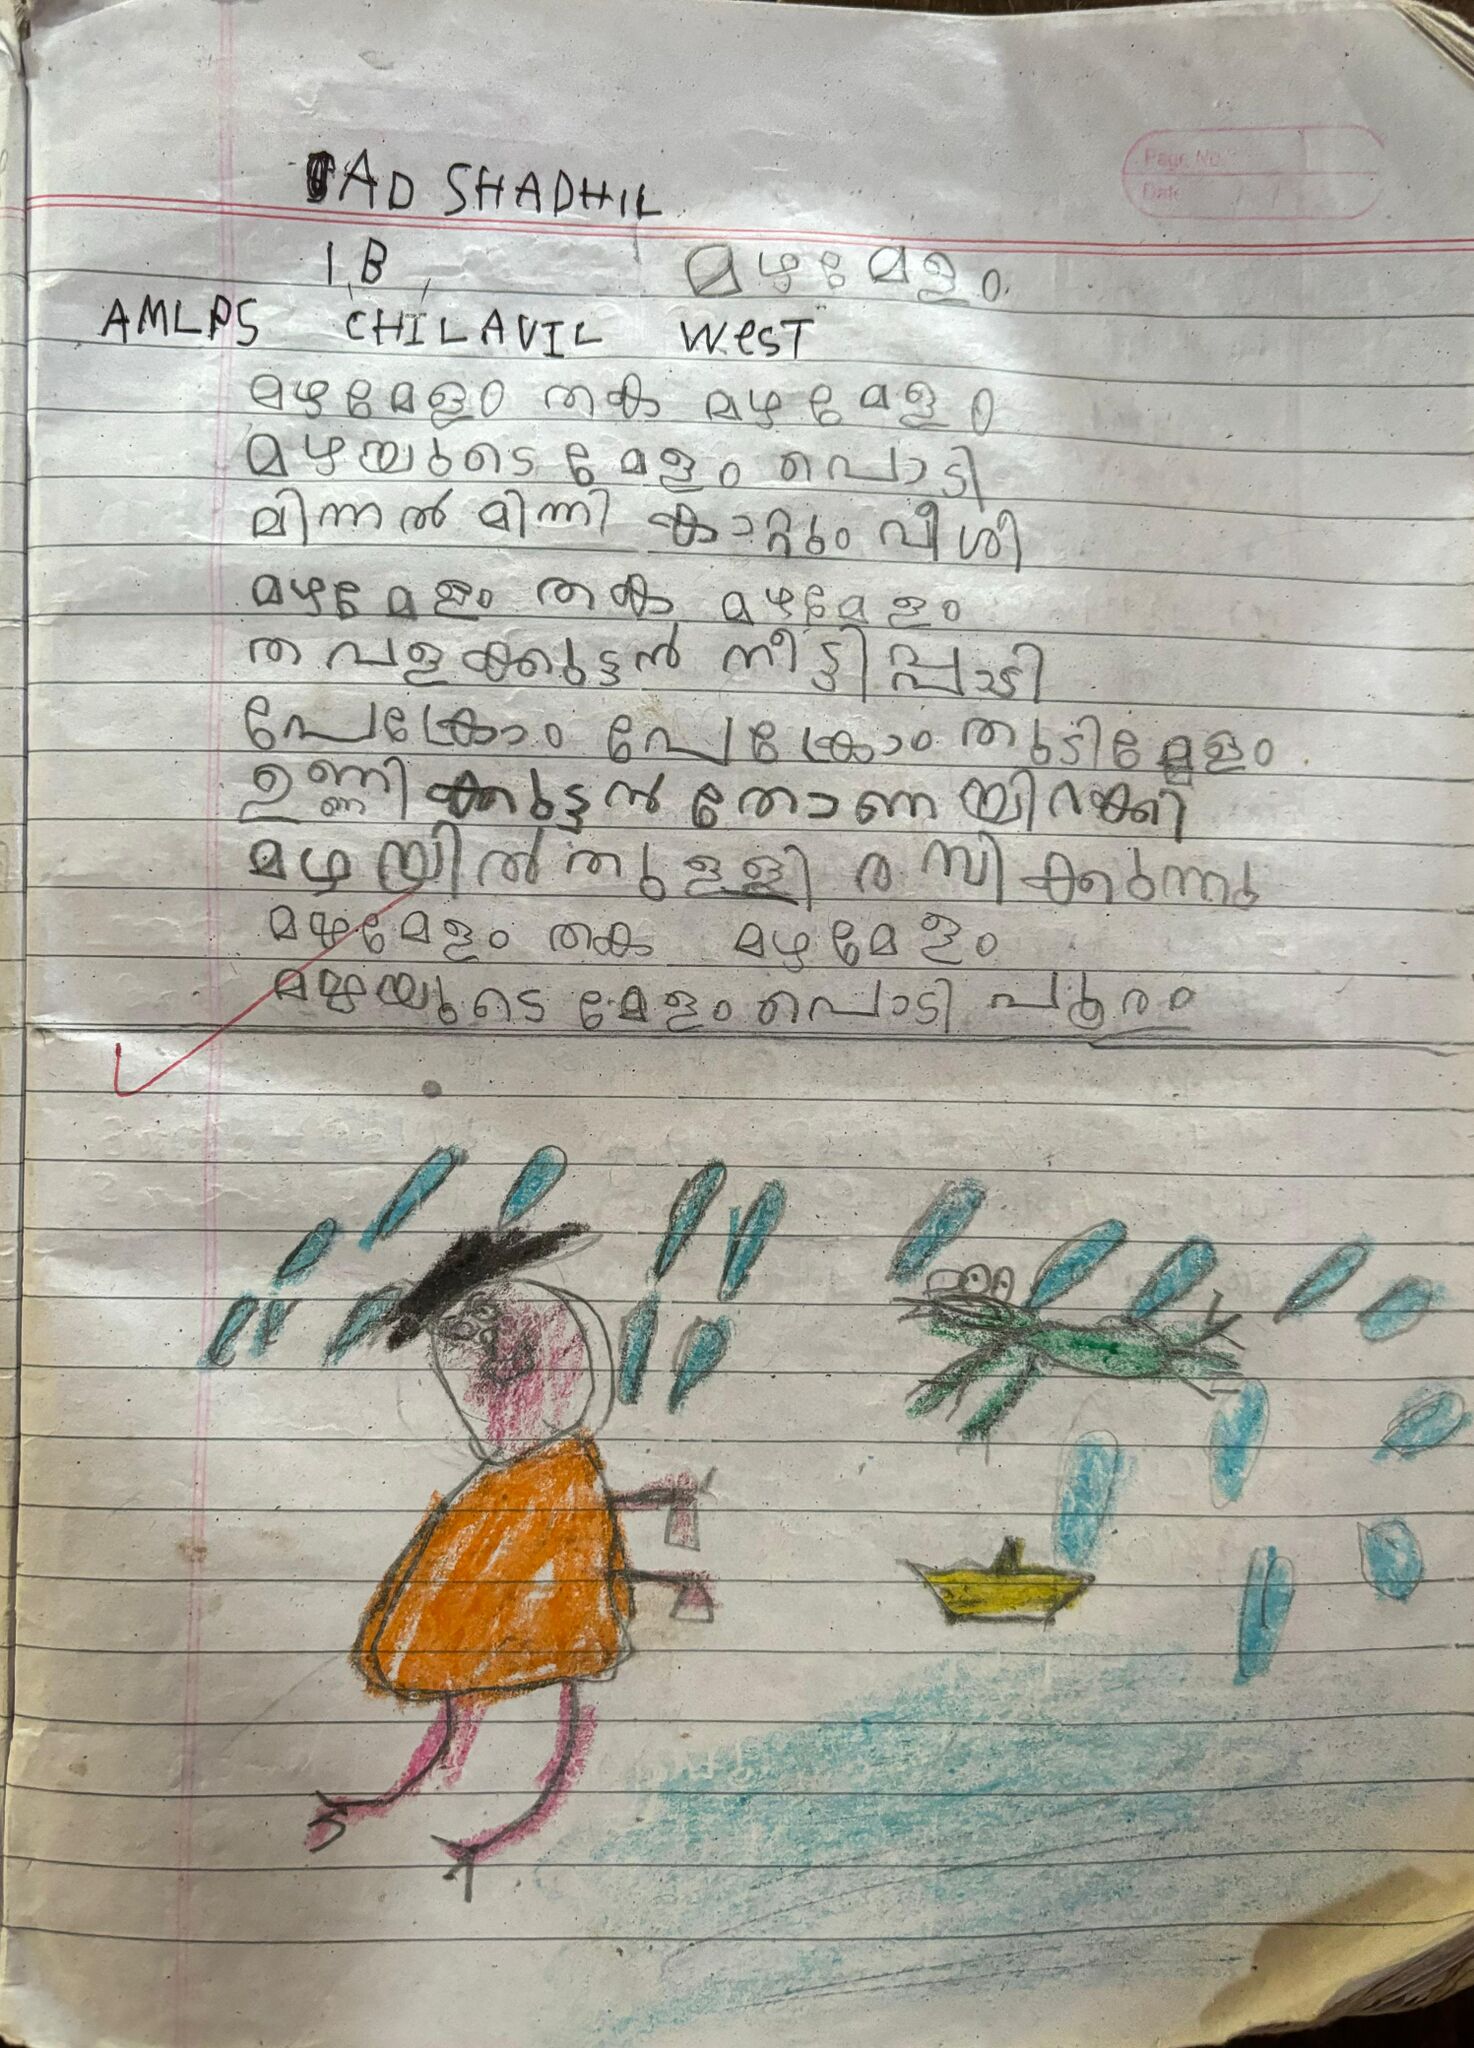 AD SHADHIL
1 B
മഴമേളം
AMLPS CHILAVIL WesT
മഴമേളം തക മഴമേളം
മഴയുടെ മേളം പൊടി
മിന്നൽ മിന്നി കാറ്റും വീശി
മഴമേളം തക മഴമേളം
തവളക്കുട്ടൻ നീട്ടിപ്പാടി
പേക്രോം പേക്രോം തുടിമേളം
ഉണ്ണിക്കുട്ടൻ തോണയിറക്കി
മഴയിൽ തുള്ളി രസിക്കുന്നു
മഴമേളം തക മഴമേളം
മഴയുടെ മേളം പൊടി പൂരം
Page No.
Date